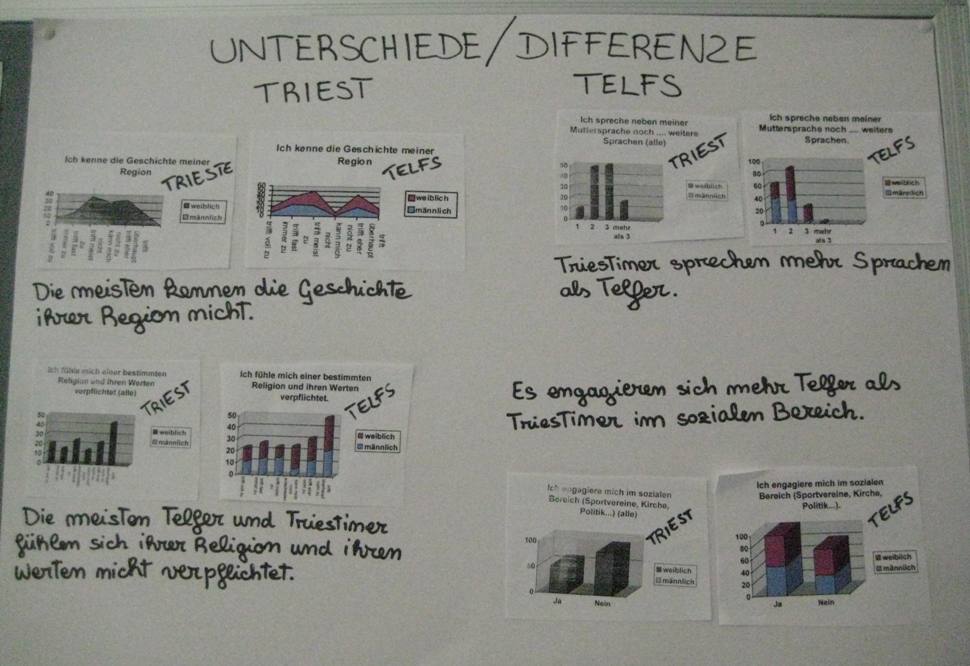 UNTERSCHIEDE/DIFFERENZE
TRIEST
TELFS
Ich kenne die Geschichte meiner
Region
TRIESTE
40
30
20
10
0
weiblich
männlich
Ich kenne die Geschichte meiner
Region
TELFS
weiblich
männlich
trifft voll zu
immer zu
trifft fast
zu
trifft meist
nicht
kann mich
nicht zu
trifft eher
überhaupt
trifft
Die meisten kennen die Geschichte
ihrer Region nicht.
Ich spreche neben meiner
Muttersprache noch .... weitere
Sprachen (alle)
TRIEST
50
40
30
20
10
0
1 2 3 mehr
als 3
weiblich
männlich
Ich spreche neben meiner
Muttersprache noch .... weitere
Sprachen.
TELFS
100
80
60
40
20
0
1 2 3 mehr
als 3
weiblich
männlich
Triestiner sprechen mehr Sprachen
als Telfer.
Ich fühle mich einer bestimmten
Religion und ihren Werten
verpflichtet (alle)
TRIEST
50
40
30
20
10
0
weiblich
männlich
Ich fühle mich einer bestimmten
Religion und ihren Werten
verpflichtet.
TELFS
50
40
30
20
10
0
weiblich
männlich
Die meisten Telfer und Triestiner
fühlen sich ihrer Religion und ihren
Werten nicht verpflichtet.
Es engagieren sich mehr Telfer als
Triestiner im sozialen Bereich.
Ich engagiere mich im sozialen
Bereich (Sportvereine, Kirche,
Politik...) (alle)
TRIEST
100
50
0
Ja Nein
weiblich
männlich
Ich engagiere mich im sozialen
Bereich (Sportvereine, Kirche,
Politik...).
TELFS
100
80
60
40
20
0
Ja Nein
weiblich
männlich